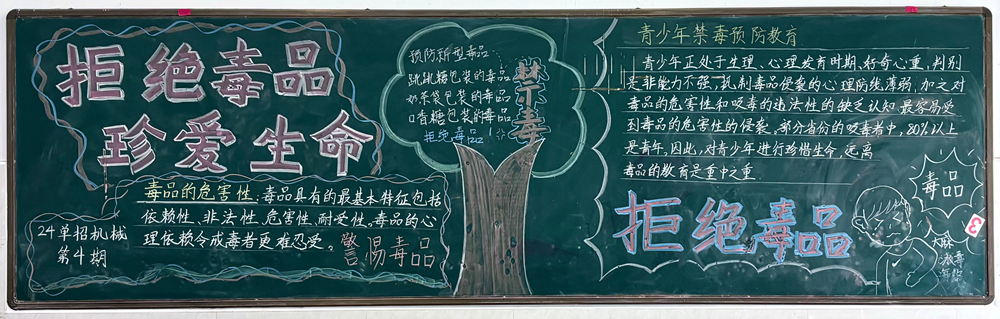 拒绝毒品
珍爱生命
毒品的危害性:毒品具有的最基本特征包括
依赖性、非法性、危害性、耐受性。毒品的心
理依赖令戒毒者更难忍受。
警惕毒品
24单招机械
第4期
预防新型毒品:
跳跳糖包装的毒品
奶茶袋包装的毒品
口香糖包装的毒品
拒绝毒品!
禁毒
青少年禁毒预防教育
青少年正处于生理、心理发育时期,好奇心重,判别
是非能力不强,抵制毒品侵袭的心理防线薄弱,加之对
毒品的危害性和吸毒的违法性的缺乏认知,最容易受
到毒品的危害性的侵袭。部分省份的吸毒者中,80%以上
是青年,因此,对青少年进行珍惜生命,远离
毒品的教育是重中之重
拒绝毒品
毒品
大麻
冰毒
3